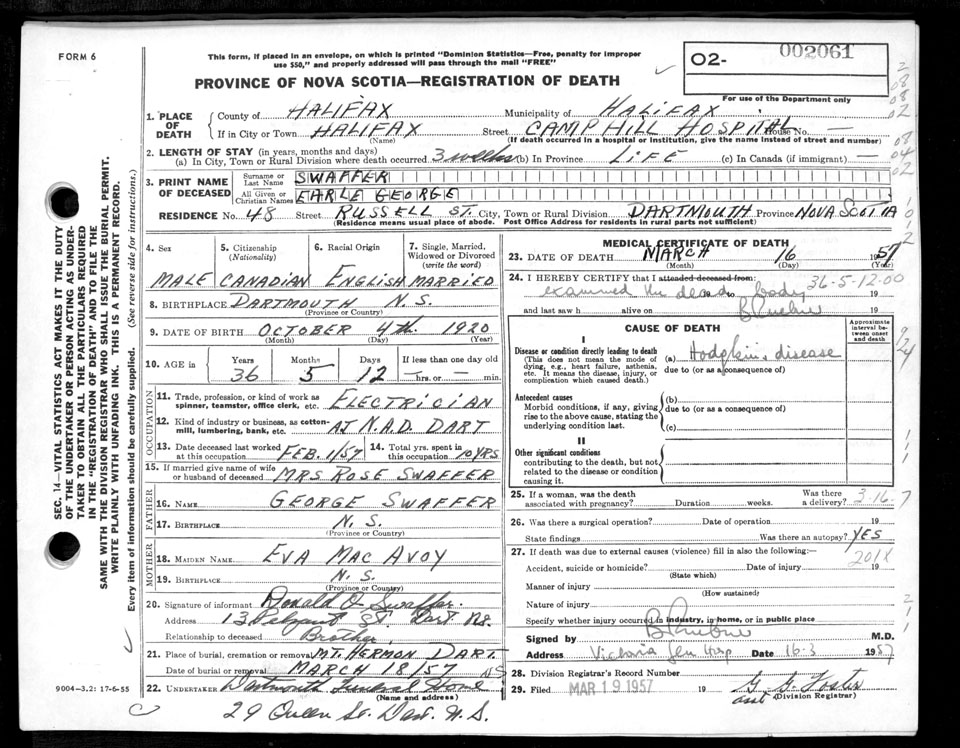 FORM 6
This form, if placed in an envelope, on which is printed "Dominion Statistics—Free, penalty for improper
use $50," and properly addressed will pass through the mail "FREE"
002061
O2-
For use of the Department only
PROVINCE OF NOVA SCOTIA—REGISTRATION OF DEATH
SEC. 14—VITAL STATISTICS ACT MAKES IT THE DUTY
OF THE UNDERTAKER OR PERSON ACTING AS UNDER-
TAKER TO OBTAIN ALL THE PARTICULARS REQUIRED
IN THE "REGISTRATION OF DEATH" AND TO FILE THE
SAME WITH THE DIVISION REGISTRAR WHO SHALL ISSUE THE BURIAL PERMIT.
WRITE PLAINLY WITH UNFADING INK. THIS IS A PERMANENT RECORD.
Every item of information should be carefully supplied. (See reverse side for instructions.)
1. PLACE OF DEATH
County of HALIFAX Municipality of HALIFAX
If in City or Town HALIFAX Street CAMP HILL HOSPITAL House No. —
(Name) (If death occurred in a hospital or institution, give the name instead of street and number)
2. LENGTH OF STAY (in years, months and days)
(a) In City, Town or Rural Division where death occurred 3 weeks (b) In Province LIFE (c) In Canada (if immigrant) —
3. PRINT NAME OF DECEASED
Surname or Last Name SWAFFER
All Given or Christian Names EARLE GEORGE
RESIDENCE No. 48 Street RUSSELL ST. City, Town or Rural Division DARTMOUTH Province NOVA SCOTIA
(Residence means usual place of abode. Post Office Address for residents in rural parts not sufficient)
4. Sex 5. Citizenship (Nationality) 6. Racial Origin 7. Single, Married, Widowed or Divorced (write the word)
MALE CANADIAN ENGLISH MARRIED
8. BIRTHPLACE DARTMOUTH N.S.
(Province or Country)
9. DATE OF BIRTH OCTOBER 4th 1920
(Month) (Day) (Year)
10. AGE in Years Months Days If less than one day old
36 5 12 — hrs. or — min.
OCCUPATION
11. Trade, profession, or kind of work as
spinner, teamster, office clerk, etc. ELECTRICIAN
12. Kind of industry or business, as cotton-
mill, lumbering, bank, etc. AT N.A.D. DART
13. Date deceased last worked at this occupation FEB. 1/57 14. Total yrs. spent in this occupation 10 YRS
15. If married give name of wife
or husband of deceased MRS ROSE SWAFFER
FATHER
16. NAME GEORGE SWAFFER
17. BIRTHPLACE N.S.
(Province or Country)
MOTHER
18. MAIDEN NAME EVA MACAVOY
19. BIRTHPLACE N.S.
(Province or Country)
20. Signature of informant Ronald O Swaffer
Address 13 St Dart NS.
Relationship to deceased Brother
21. Place of burial, cremation or removal MT. HERMON DART.
Date of burial or removal MARCH 18/57 NS
22. UNDERTAKER Dartmouth Funeral Home
(Name and address)
29 Queen St. Dart. N.S.
9004-3.2: 17-6-55
MEDICAL CERTIFICATE OF DEATH
23. DATE OF DEATH MARCH 16 1957
(Month) (Day) (Year)
24. I HEREBY CERTIFY that I attended deceased from: 36-5-12-00
examined the dead body 19
and last saw h alive on 19
CAUSE OF DEATH
Approximate interval between onset and death
I
Disease or condition directly leading to death (a) Hodgkin's disease
(This does not mean the mode of dying, e.g., heart failure, asthenia, etc. It means the disease, injury, or complication which caused death.)
due to (or as a consequence of)
Antecedent causes
Morbid conditions, if any, giving rise to the above cause, stating the underlying condition last.
(b)
due to (or as a consequence of)
(c)
II
Other significant conditions
contributing to the death, but not related to the disease or condition causing it.
25. If a woman, was the death associated with pregnancy? Duration weeks. Was there a delivery? 3-16-7
26. Was there a surgical operation? Date of operation 19
State findings Was there an autopsy? YES
27. If death was due to external causes (violence) fill in also the following:— 201X
Accident, suicide or homicide? Date of injury 19
(State which)
Manner of injury
(How sustained)
Nature of injury
Specify whether injury occurred in industry, in home, or in public place
Signed by M.D.
Address Victoria Gen Hosp Date 16-3 1957
28. Division Registrar's Record Number
29. Filed MAR 19 1957 19 G. G. Foster
asst (Division Registrar)